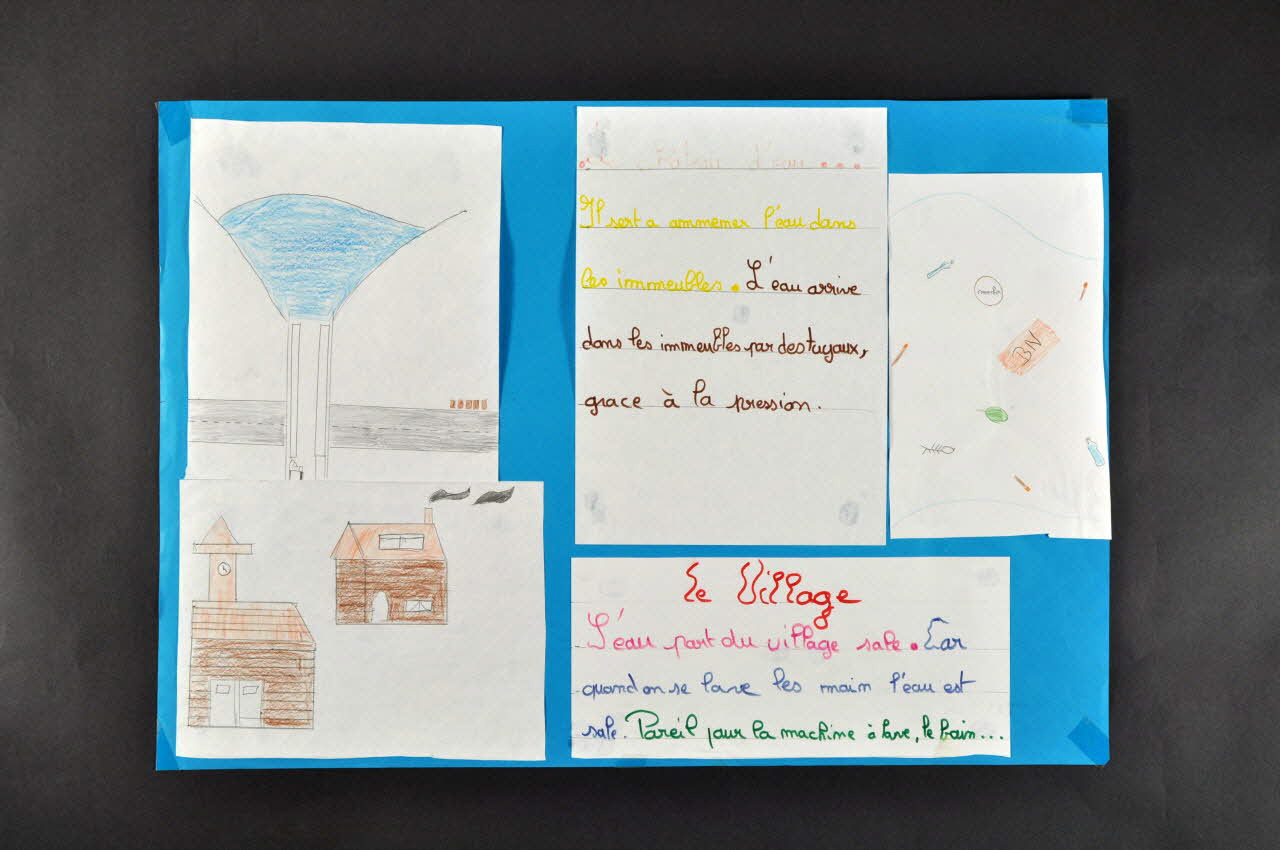 château d'eau...
Il sert a ammemer l'eau dans
les immeubles. L'eau arrive
dans les immeubles par des tuyaux,
grace à la pression.
BN
Le Village
L'eau part du village sale. Car
quand on se lave les main l'eau est
sale. Pareil pour la machine à lave, le bain...